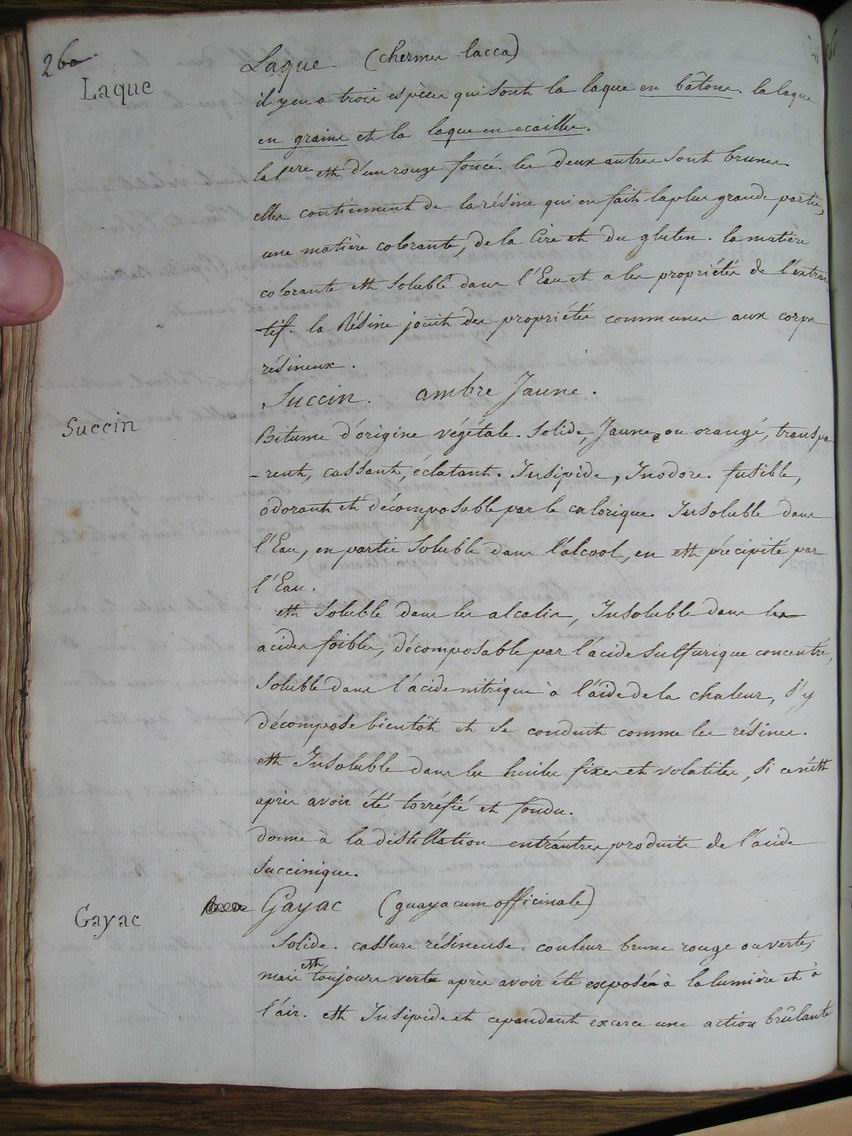 260
Laque
Laque. (chermes lacca)
il y en a trois espèces qui sont la laque en bâtons. la laque
en grains et la laque en ecailles.
la 1ere est d'un rouge foncé. les deux autres sont brunes
elles contiennent de la résine qui en fait la plus grande partie,
une matière colorante, de la Cire et du gluten. la matière
colorante est soluble dans l'Eau et a les propriétés de l'extrac
tif. la Résine jouit des propriétés communes aux corps
résineux.
Succin
Succin. ambre Jaune.
Bitume d'origine végétale. Solide, Jaune ou orangé, transpa
-rent, cassant, éclatant. Insipide, Inodore. fusible,
odorant et décomposable par le calorique. Insoluble dans
l'Eau, en partie soluble dans l'alcool, en est précipité par
l'Eau.
est soluble dans les alcalis, Insoluble dans les
acides foibles, décomposable par l'acide sulfurique concentré,
soluble dans l'acide nitrique à l'aide de la chaleur, s'y
décompose bientôt et se conduit comme les résines.
est Insoluble dans les huiles fixes et volatiles, si ce n'est
après avoir été torréfié et fondu.
donne à la distillation entr'autres produits de l'acide
succinique.
Gayac
Gayac (guayacum officinale)
Solide. cassure résineuse. couleur brune rouge ou verte,
mais est toujours verte après avoir été exposée à la lumière et à
l'air. est Insipide et cependant exerce une action brûlante